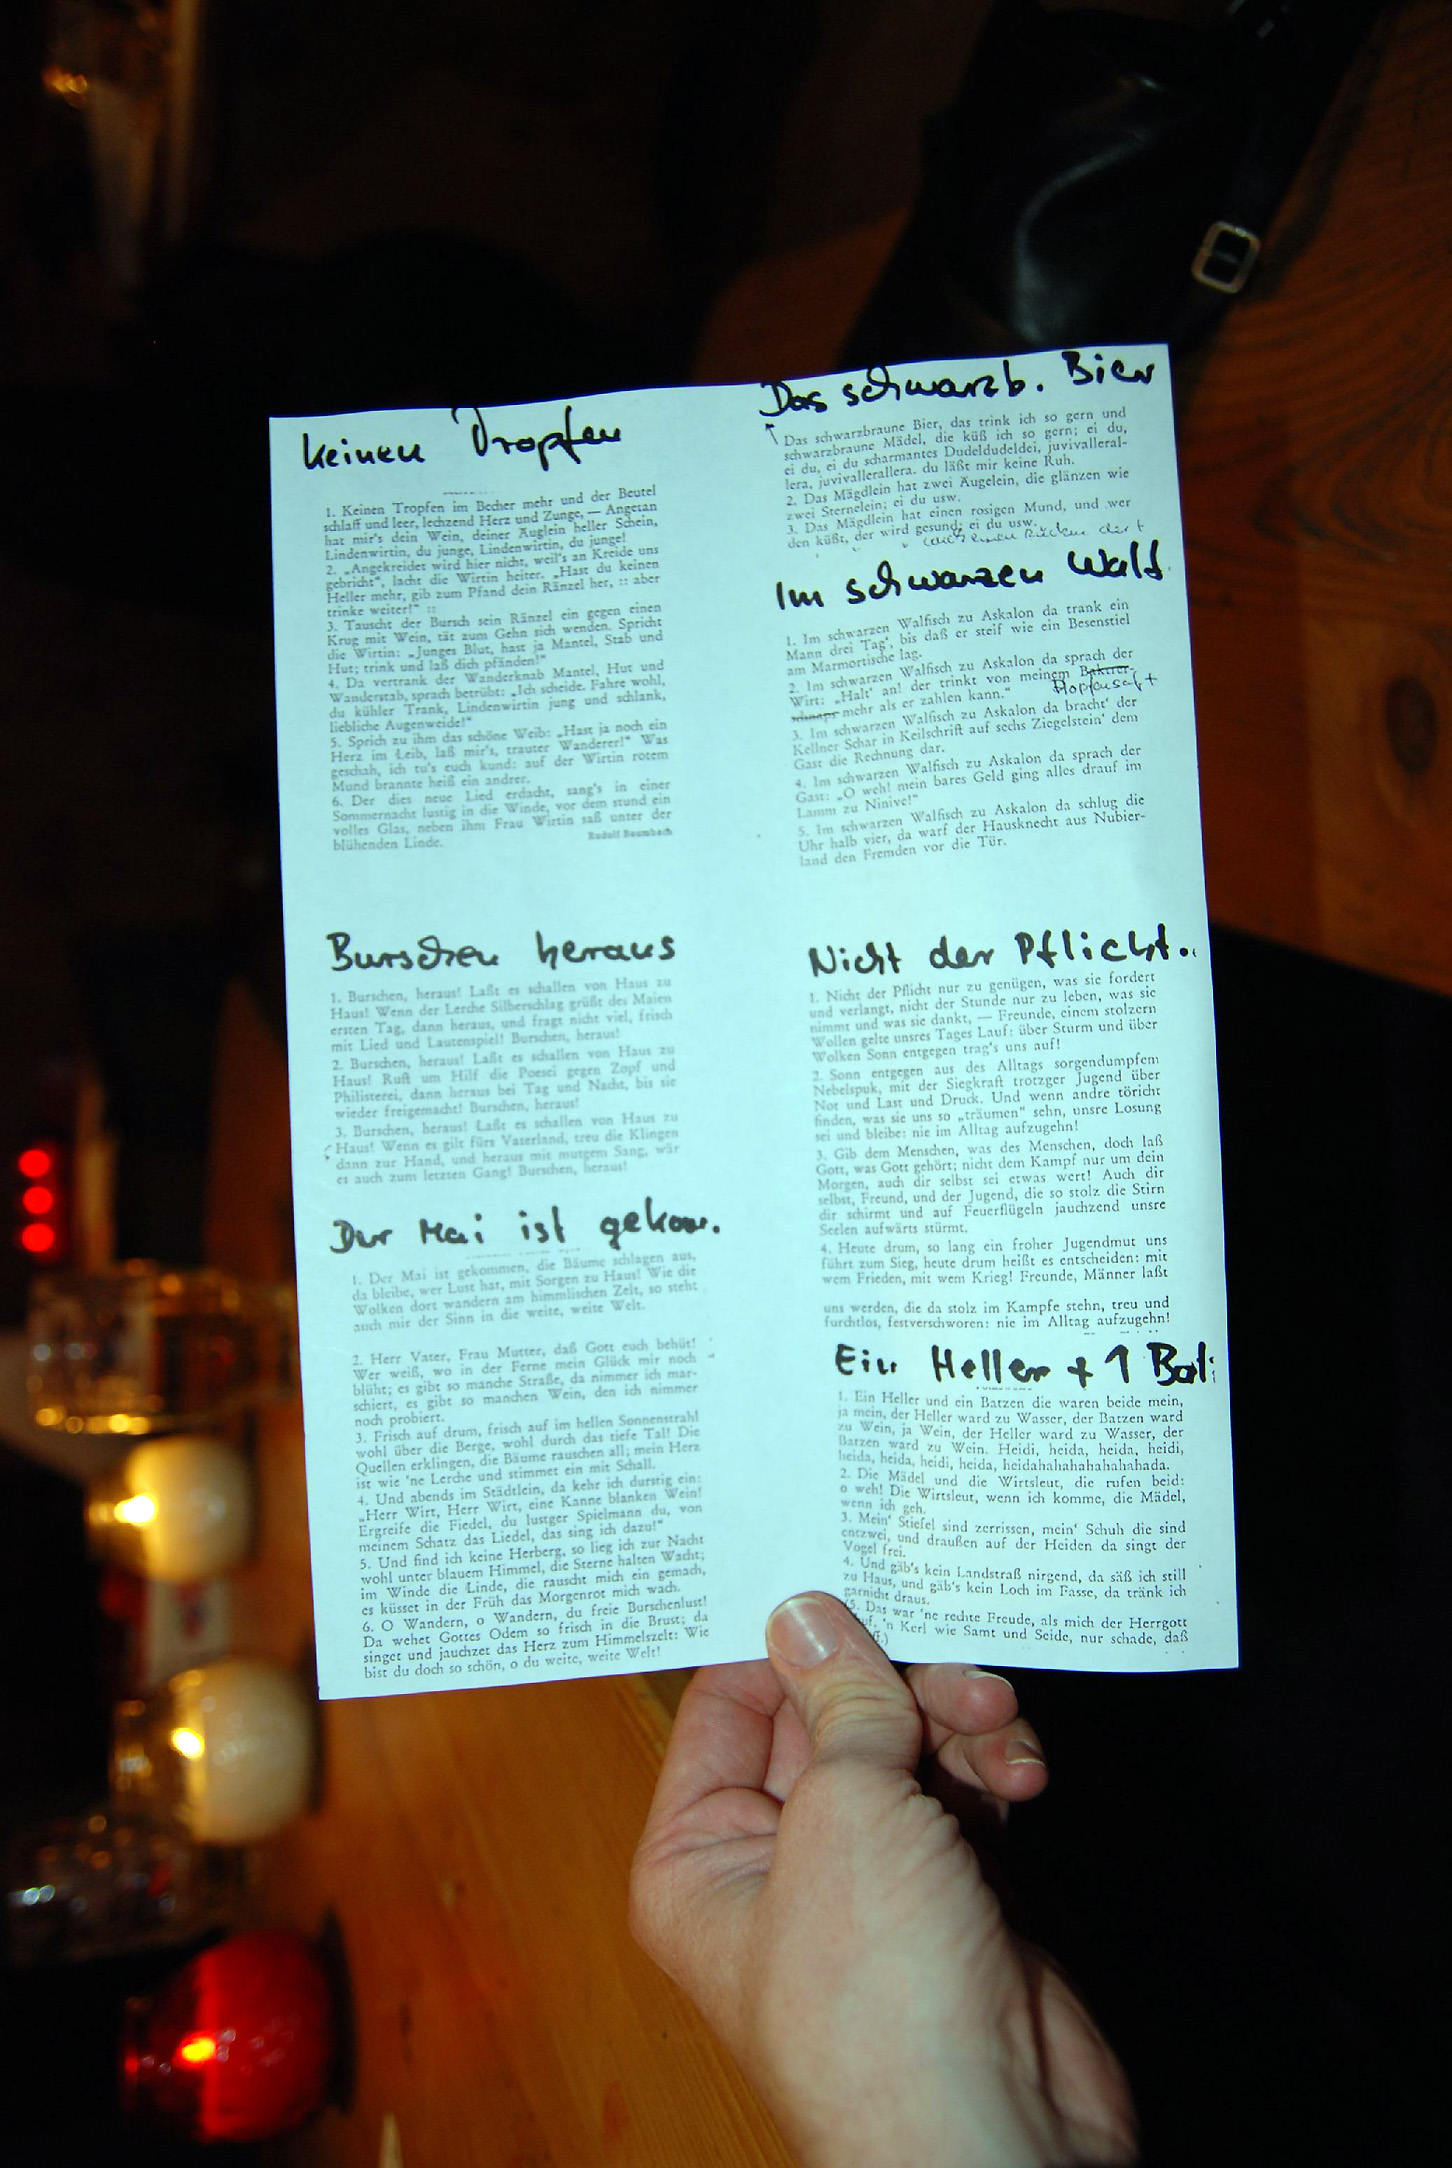 keinen Tropfen
1. Keinen Tropfen im Becher mehr und der Beutel
schlaff und leer, lechzend Herz und Zunge, — Angetan
hat mir's dein Wein, deiner Äuglein heller Schein,
Lindenwirtin, du junge, Lindenwirtin, du junge!
2. „Angekreidet wird hier nicht, weil's an Kreide uns
gebricht", lacht die Wirtin heiter. „Hast du keinen
Heller mehr, gib zum Pfand dein Ränzel her, :: aber
trinke weiter!" ::
3. Tauscht der Bursch sein Ränzel ein gegen einen
Krug mit Wein, tät zum Gehn sich wenden. Spricht
die Wirtin: „Junges Blut, hast ja Mantel, Stab und
Hut; trink und laß dich pfänden!"
4. Da vertrank der Wanderknab Mantel, Hut und
Wanderstab, sprach betrübt: „Ich scheide. Fahre wohl,
du kühler Trank, Lindenwirtin jung und schlank,
liebliche Augenweide!"
5. Sprich zu ihm das schöne Weib: „Hast ja noch ein
Herz im Leib, laß mir's, trauter Wanderer!" Was
geschah, ich tu's euch kund: auf der Wirtin rotem
Mund brannte heiß ein andrer.
6. Der dies neue Lied erdacht, sang's in einer
Sommernacht lustig in die Winde, vor dem stund ein
volles Glas, neben ihm Frau Wirtin saß unter der
blühenden Linde.
Rudolf Baumbach
Burschen heraus
1. Burschen, heraus! Laßt es schallen von Haus zu
Haus! Wenn der Lerche Silberschlag grüßt des Maien
ersten Tag, dann heraus, und fragt nicht viel, frisch
mit Lied und Lautenspiel! Burschen, heraus!
2. Burschen, heraus! Laßt es schallen von Haus zu
Haus! Ruft um Hilf die Poesei gegen Zopf und
Philisterei, dann heraus bei Tag und Nacht, bis sie
wieder freigemacht! Burschen, heraus!
3. Burschen, heraus! Laßt es schallen von Haus zu
Haus! Wenn es gilt fürs Vaterland, treu die Klingen
dann zur Hand, und heraus mit mutgem Sang, wär
es auch zum letzten Gang! Burschen, heraus!
Der Mai ist gekom.
1. Der Mai ist gekommen, die Bäume schlagen aus,
da bleibe, wer Lust hat, mit Sorgen zu Haus! Wie die
Wolken dort wandern am himmlischen Zelt, so steht
auch mir der Sinn in die weite, weite Welt.
2. Herr Vater, Frau Mutter, daß Gott euch behüt!
Wer weiß, wo in der Ferne mein Glück mir noch
blüht; es gibt so manche Straße, da nimmer ich mar-
schiert, es gibt so manchen Wein, den ich nimmer
noch probiert.
3. Frisch auf drum, frisch auf im hellen Sonnenstrahl
wohl über die Berge, wohl durch das tiefe Tal! Die
Quellen erklingen, die Bäume rauschen all; mein Herz
ist wie 'ne Lerche und stimmet ein mit Schall.
4. Und abends im Städtlein, da kehr ich durstig ein:
„Herr Wirt, Herr Wirt, eine Kanne blanken Wein!
Ergreife die Fiedel, du lustger Spielmann du, von
meinem Schatz das Liedel, das sing ich dazu!"
5. Und find ich keine Herberg, so lieg ich zur Nacht
wohl unter blauem Himmel, die Sterne halten Wacht;
im Winde die Linde, die rauscht mich ein gemach,
es küsset in der Früh das Morgenrot mich wach.
6. O Wandern, o Wandern, du freie Burschenlust!
Da wehet Gottes Odem so frisch in die Brust; da
singet und jauchzet das Herz zum Himmelszelt: Wie
bist du doch so schön, o du weite, weite Welt!
Das schwarzb. Bier
Das schwarzbraune Bier, das trink ich so gern und
schwarzbraune Mädel, die küß ich so gern; ei du,
ei du, ei du scharmantes Dudeldudeldei, juvivalleral-
lera, juvivallerallera. du läßt mir keine Ruh.
2. Das Mägdlein hat zwei Äugelein, die glänzen wie
zwei Sternelein; ei du usw.
3. Das Mägdlein hat einen rosigen Mund, und wer
den küßt, der wird gesund; ei du usw.
Im schwarzen Walf
1. Im schwarzen Walfisch zu Askalon da trank ein
Mann drei Tag', bis daß er steif wie ein Besenstiel
am Marmortische lag.
2. Im schwarzen Walfisch zu Askalon da sprach der
Wirt: „Halt' an! der trinkt von meinem Baktrer-
Hopfensaft
schnaps mehr als er zahlen kann."
3. Im schwarzen Walfisch zu Askalon da bracht' der
Kellner Schar in Keilschrift auf sechs Ziegelstein' dem
Gast die Rechnung dar.
4. Im schwarzen Walfisch zu Askalon da sprach der
Gast: „O weh! mein bares Geld ging alles drauf im
Lamm zu Ninive!"
5. Im schwarzen Walfisch zu Askalon da schlug die
Uhr halb vier, da warf der Hausknecht aus Nubier-
land den Fremden vor die Tür.
Nicht der Pflicht..
1. Nicht der Pflicht nur zu genügen, was sie fordert
und verlangt, nicht der Stunde nur zu leben, was sie
nimmt und was sie dankt, — Freunde, einem stolzern
Wollen gelte unsres Tages Lauf: über Sturm und über
Wolken Sonn entgegen trag's uns auf!
2. Sonn entgegen aus des Alltags sorgendumpfem
Nebelspuk, mit der Siegkraft trotzger Jugend über
Not und Last und Druck. Und wenn andre töricht
finden, was sie uns so „träumen" sehn, unsre Losung
sei und bleibe: nie im Alltag aufzugehn!
3. Gib dem Menschen, was des Menschen, doch laß
Gott, was Gott gehört; nicht dem Kampf nur um dein
Morgen, auch dir selbst sei etwas wert! Auch dir
selbst, Freund, und der Jugend, die so stolz die Stirn
dir schirmt und auf Feuerflügeln jauchzend unsre
Seelen aufwärts stürmt.
4. Heute drum, so lang ein froher Jugendmut uns
führt zum Sieg, heute drum heißt es entscheiden: mit
wem Frieden, mit wem Krieg! Freunde, Männer laßt
uns werden, die da stolz im Kampfe stehn, treu und
furchtlos, festverschworen: nie im Alltag aufzugehn!
Ein Heller + 1 Bat
1. Ein Heller und ein Batzen die waren beide mein,
ja mein, der Heller ward zu Wasser, der Batzen ward
zu Wein, ja Wein, der Heller ward zu Wasser, der
Batzen ward zu Wein. Heidi, heida, heida, heidi,
heida, heida, heidi, heida, heidahahahahahahahada.
2. Die Mädel und die Wirtsleut, die rufen beid:
o weh! Die Wirtsleut, wenn ich komme, die Mädel,
wenn ich geh.
3. Mein' Stiefel sind zerrissen, mein' Schuh die sind
entzwei, und draußen auf der Heiden da singt der
Vogel frei.
4. Und gäb's kein Landstraß nirgend, da säß ich still
zu Haus, und gäb's kein Loch im Fasse, da tränk ich
garnicht draus.
5. Das war 'ne rechte Freude, als mich der Herrgott
'n Kerl wie Samt und Seide, nur schade, daß